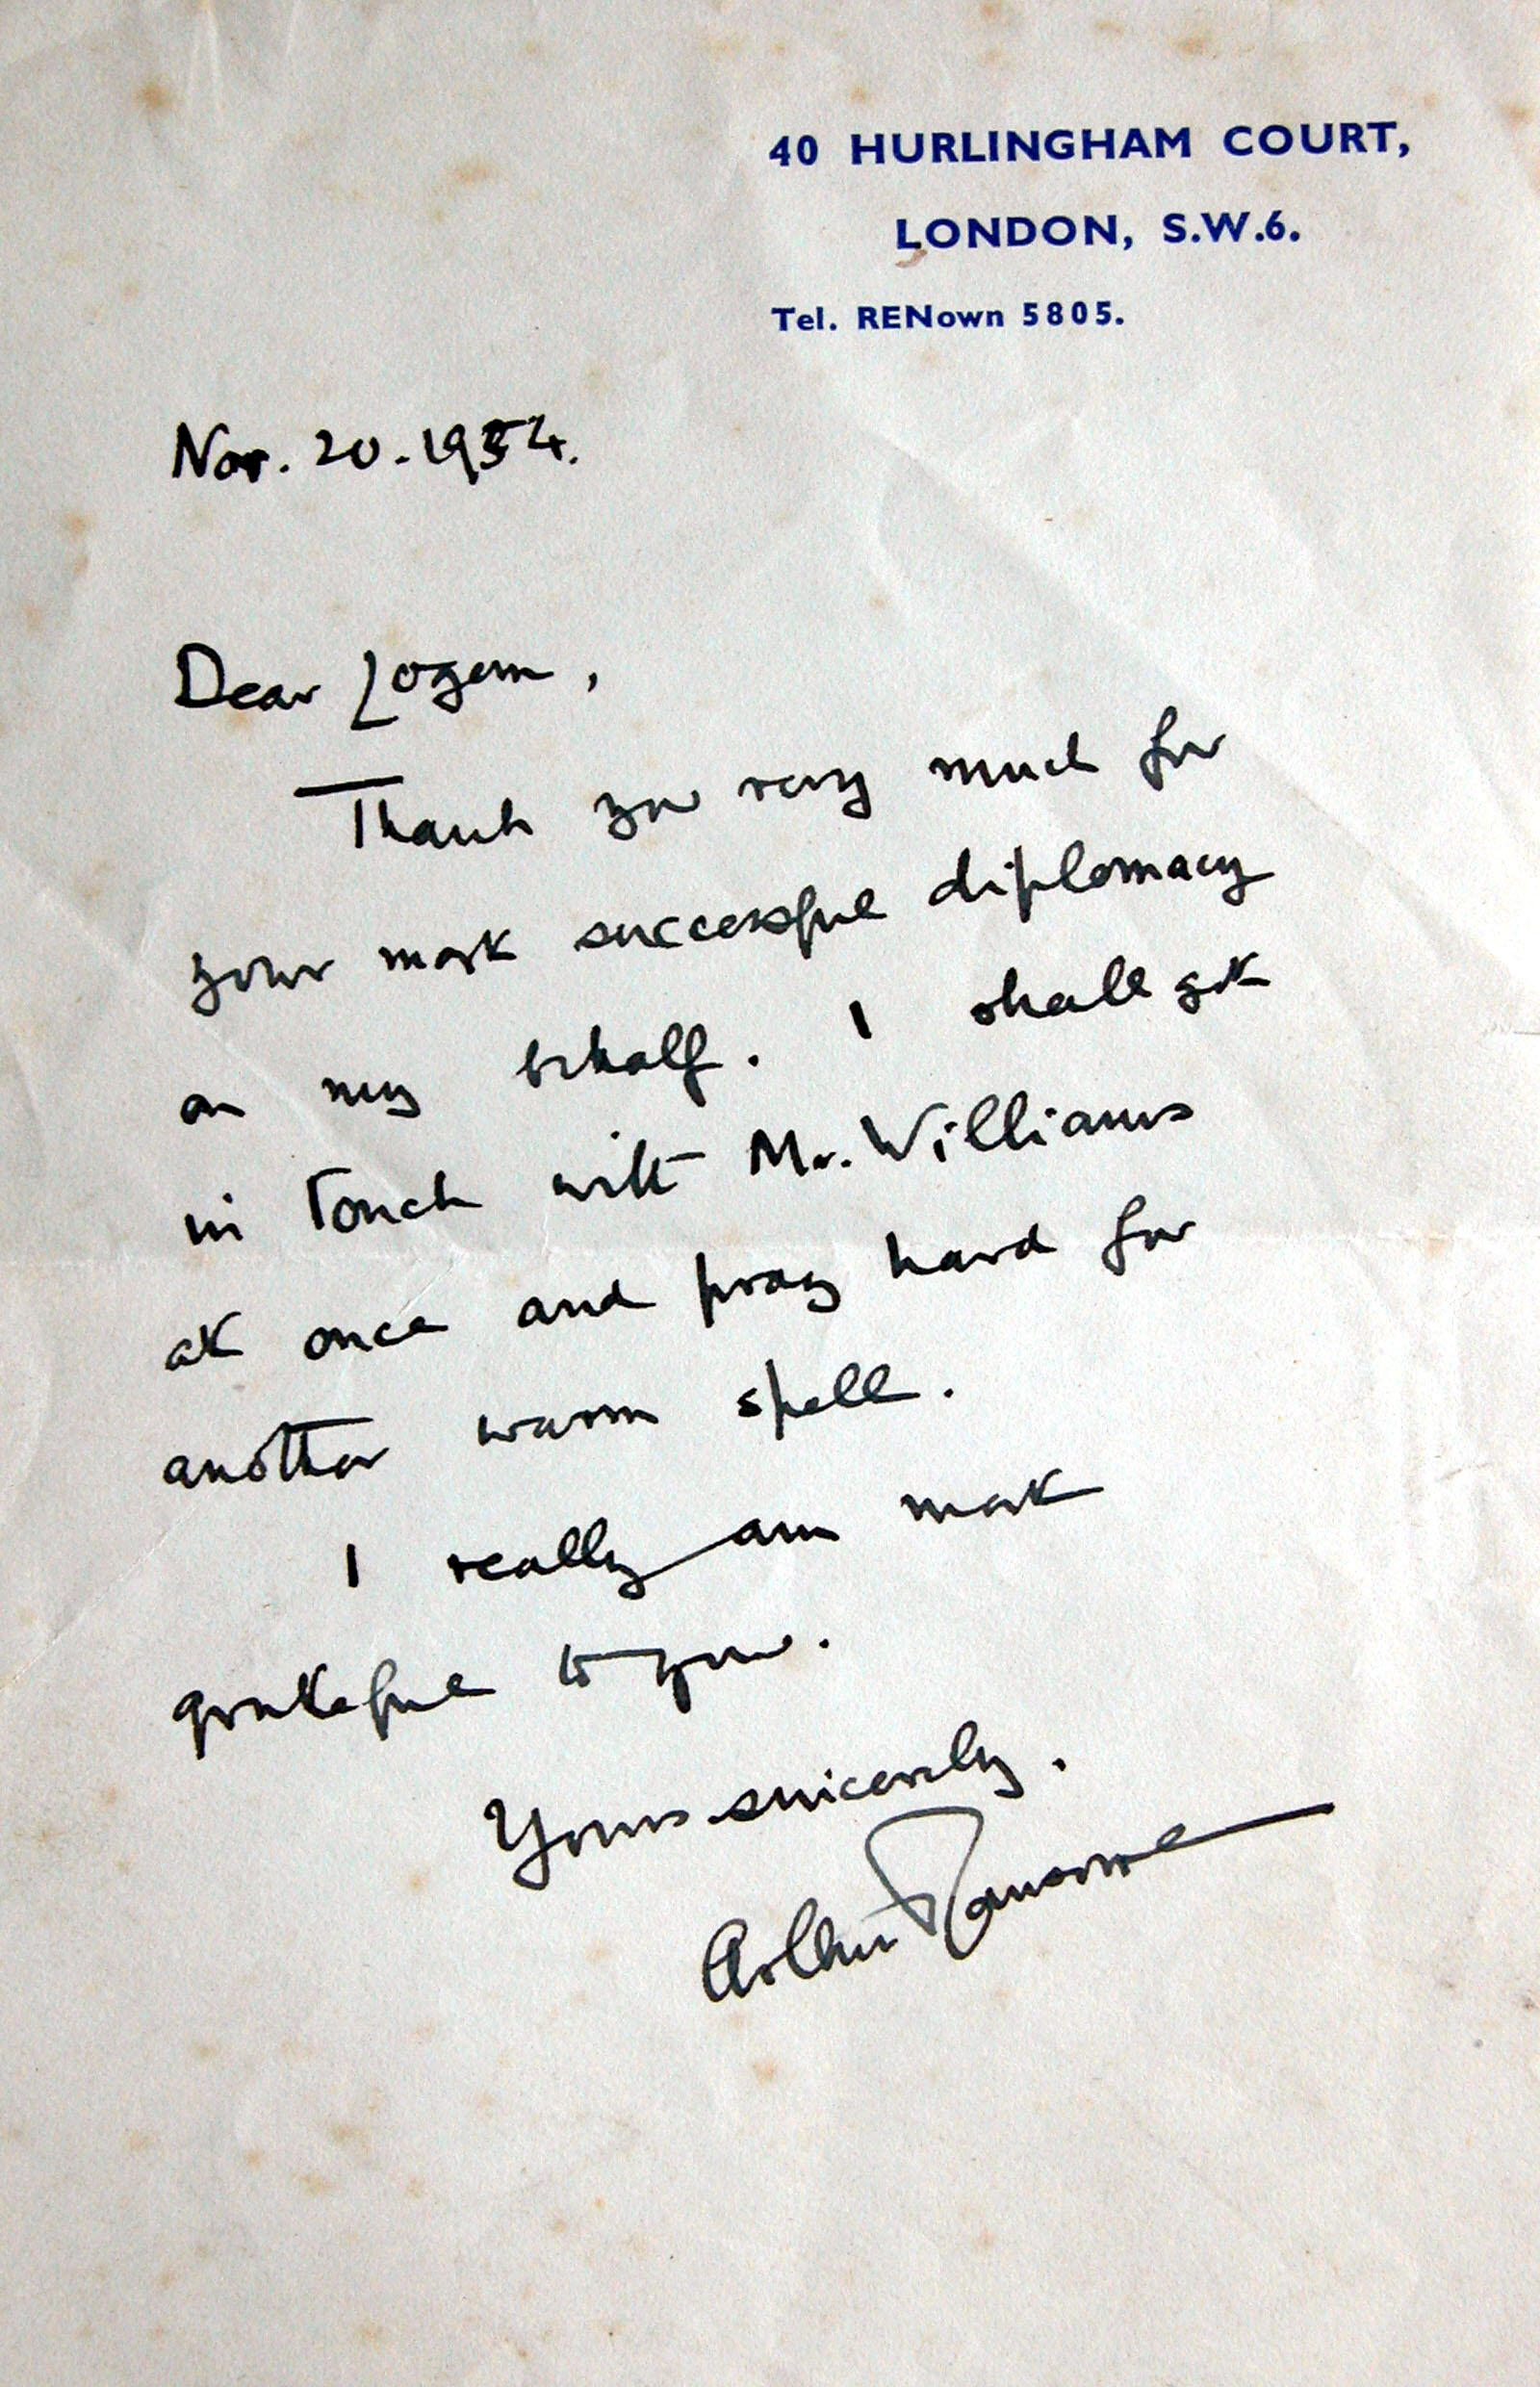 40 HURLINGHAM COURT,
LONDON, S.W.6.
Tel. RENown 5805.
Nov. 20. 1954.
Dear Logan,
Thank you very much for
your most successful diplomacy
on my behalf. I shall get
in touch with Mr. Williams
at once and pray hard for
another warm spell.
I really am most
grateful to you.
Yours sincerely.
Arthur Ransome